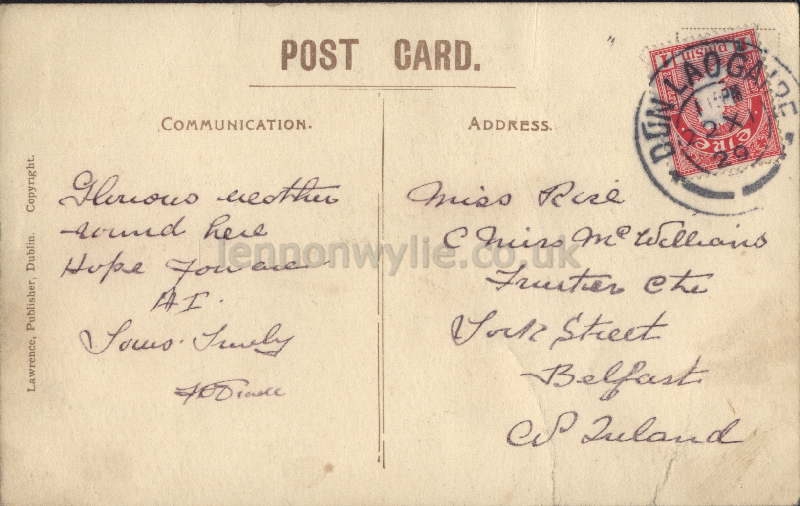 POST CARD.
COMMUNICATION.
ADDRESS.
Glorious weather
round here
Hope you are
A1.
Yours Truly
Miss Rice
C Miss McWilliams
Fruitier Etc
York Street
Belfast
Ireland
Lawrence, Publisher, Dublin. Copyright.
DÚN LAOGAIRE
PM
2 XI
29
PINSIN
EIRE
lennonwylie.co.uk